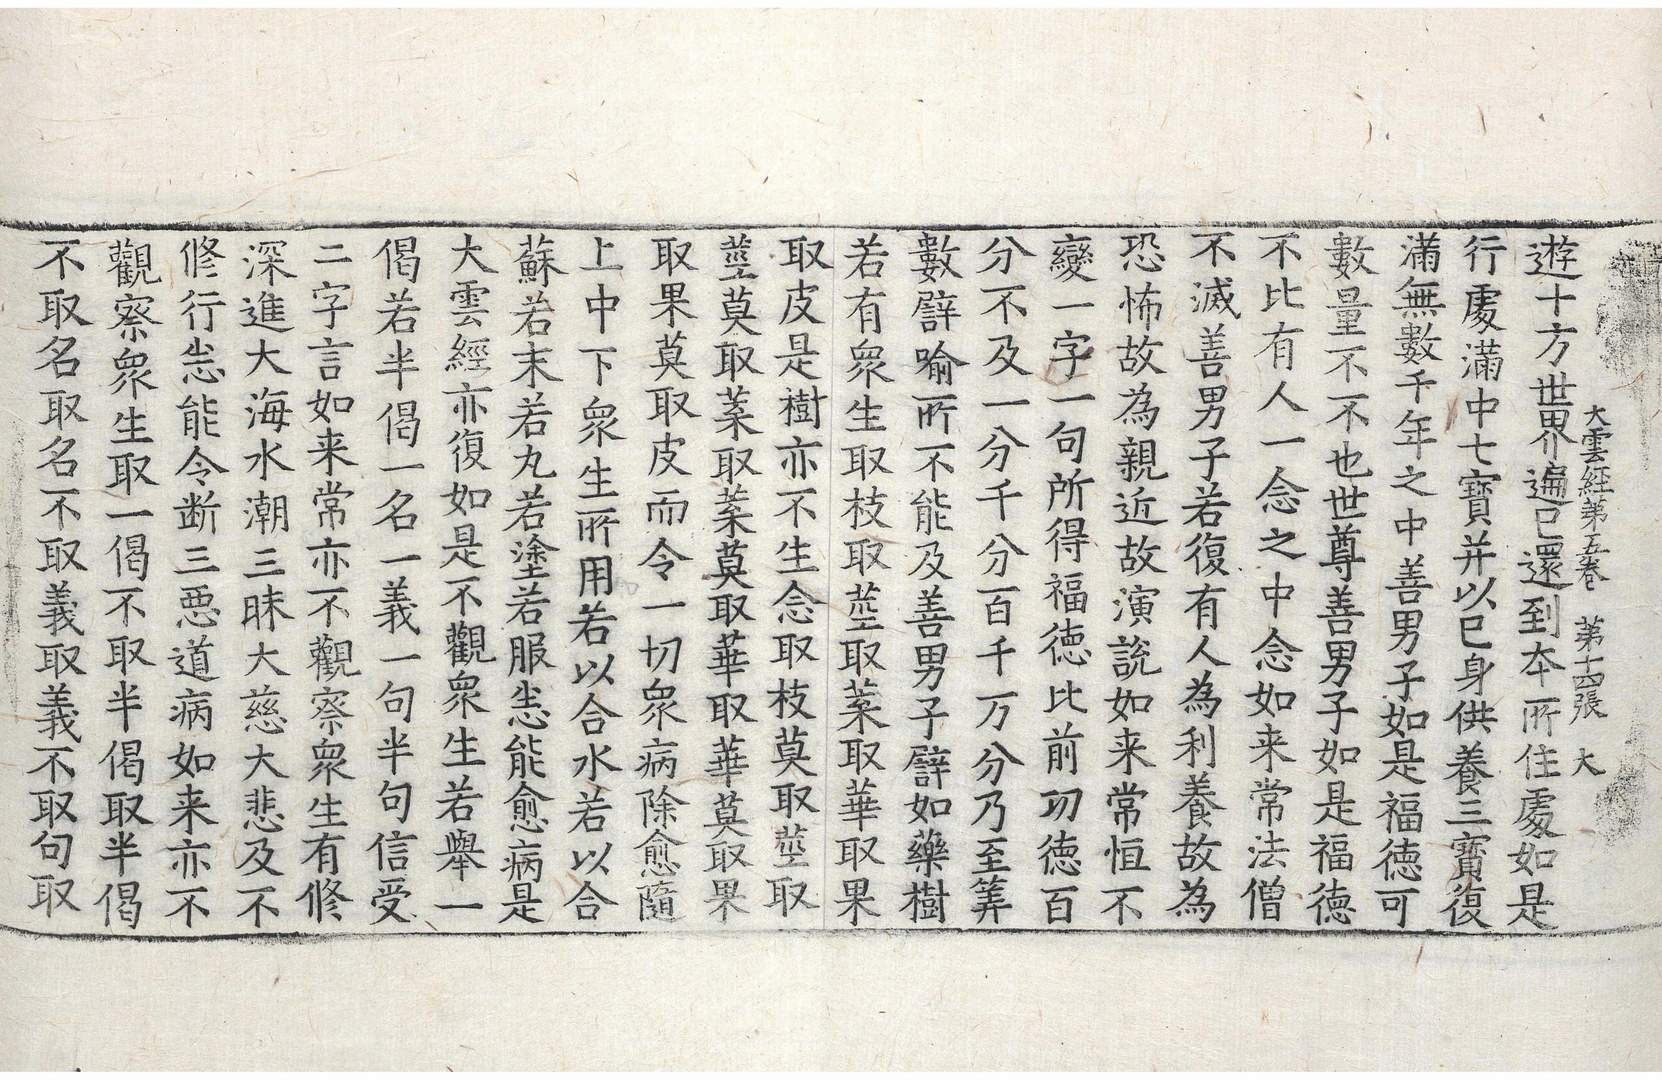 大雲經第五卷　第十四張　大
遊十方世界遍已還到本所住處如是
行處滿中七寶并以已身供養三寶復
滿無數千年之中善男子如是福德可
數量不不也世尊善男子如是福德
不比有人一念之中念如来常法僧
不滅善男子若復有人為利養故為
恐怖故為親近故演說如来常恒不
變一字一句所得福德比前功德百
分不及一分千分百千万分乃至筭
數譬喻所不能及善男子譬如藥樹
若有衆生取枝取莖取葉取華取果
取皮是樹亦不生念取枝莫取莖取
莖莫取葉取葉莫取華取華莫取果
取果莫取皮而令一切衆病除愈隨
上中下衆生所用若以合水若以合
蘇若末若丸若塗若服悉能愈病是
大雲經亦復如是不觀衆生若舉一
偈若半偈一名一義一句半句信受
二字言如来常亦不觀察衆生有修
深進大海水潮三昧大慈大悲及不
修行悉能令断三惡道病如来亦不
觀察衆生取一偈不取半偈取半偈
不取名取名不取義取義不取句取